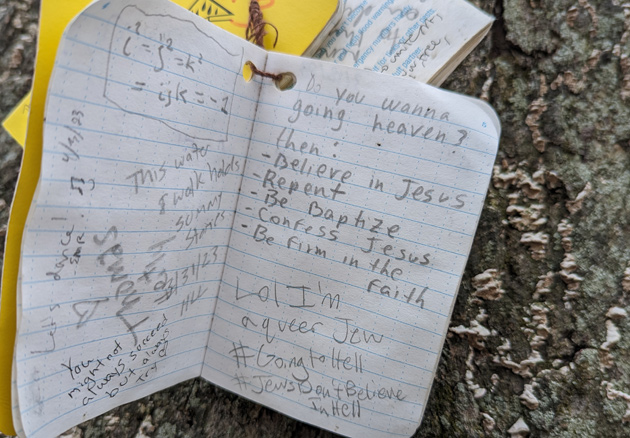 i² = j² = k²
= ijk = -1
This water
I walk holds
sunny
stones
3/31/23
4/3/23
Let's dance!
You
might not
always succeed
but always
try
Do you wanna
going heaven?
then:
- Believe in Jesus
- Repent
- Be Baptize
- Confess Jesus
- Be firm in the
Faith
Lol I'm
a queer Jew
#GoingtoHell
#JewsDontBelieve
InHell